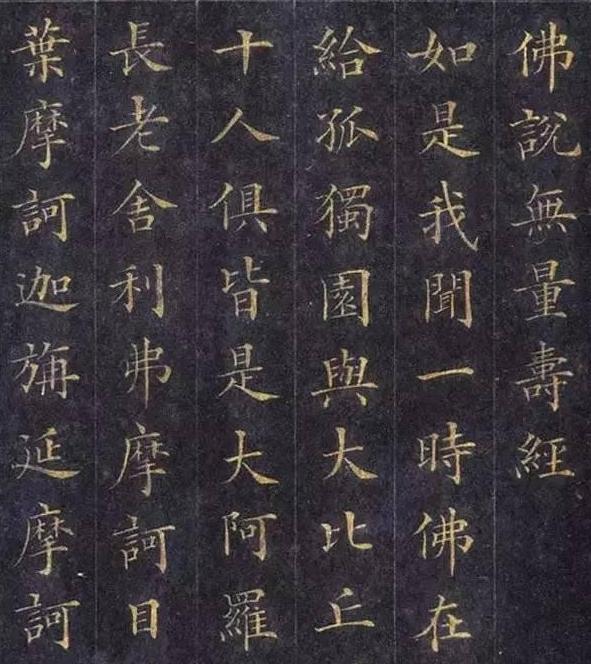 佛説無量壽經
如是我聞一時佛在
給孤獨園與大比丘
十人俱皆是大阿羅
長老舍利弗摩訶目
葉摩訶迦旃延摩訶